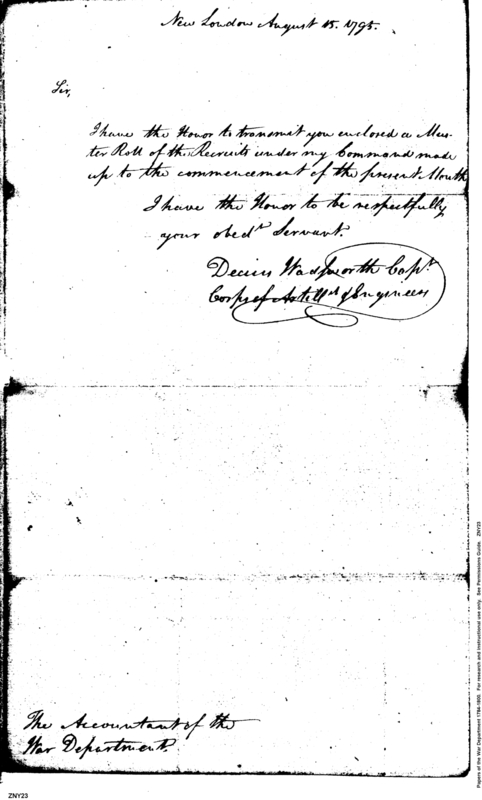 New London August 15. 1795.
Sir,
I have the Honor to transmit you enclosed a Mus-
ter Roll of the Recruits under my Command made
up to the commencement of the present Month
I have the Honor to be respectfully
your obedt Servant.
Decius Wadsworth Capt
Corps of Artillsts & Engineers
The Accountant of the
War Department.
ZNY23
Papers of the War Department 1784-1800. For research and instructional use only. See Permissions Guide. ZNY23